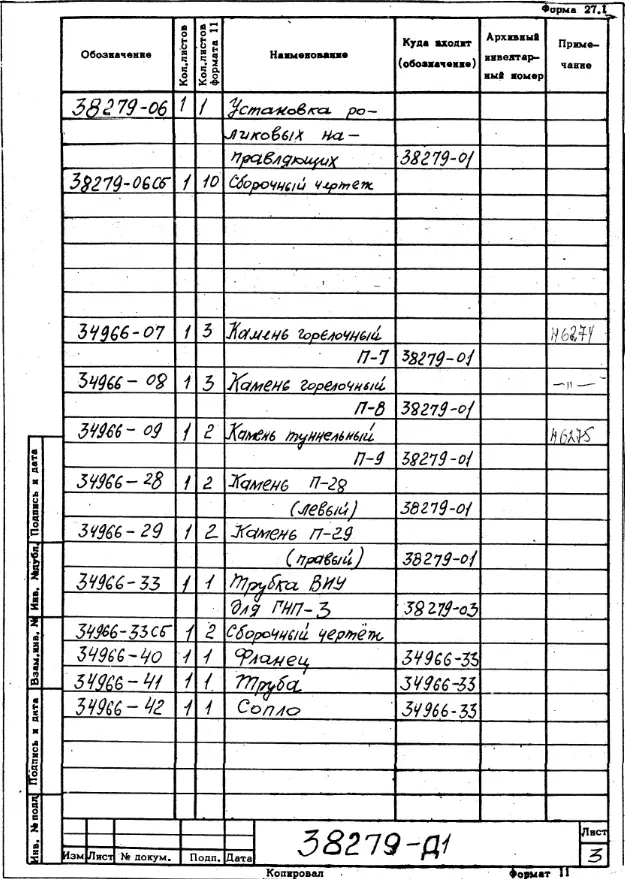 Форма 27.1
Обозначение Кол.листов Кол.листов формата 11 Наименование Куда входит (обозначение) Архивный инвентарный номер Примечание
38279-06 1 1 Установка ро-
ликовых на-
правляющих 38279-01
38279-06СБ 1 10 Сборочный чертеж
34966-07 1 3 Камень горелочный И6274
П-7 38279-01
34966-08 1 3 Камень горелочный —"—
П-8 38279-01
34966-09 1 2 Камень туннельный И6275
П-9 38279-01
34966-28 1 2 Камень П-28
(левый) 38279-01
34966-29 1 2 Камень П-29
(правый) 38279-01
34966-33 1 1 Трубка ВИУ
для ГНП-3 38279-03
34966-33СБ 1 2 Сборочный чертёж
34966-40 1 1 Фланец 34966-33
34966-41 1 1 Труба 34966-33
34966-42 1 1 Сопло 34966-33
Подпись и дата
Инв. № дубл.
Взам.инв. №
Подпись и дата
Инв. № подл
Изм Лист № докум. Подп. Дата
38279-Д1
Лист
3
Копировал Формат 11